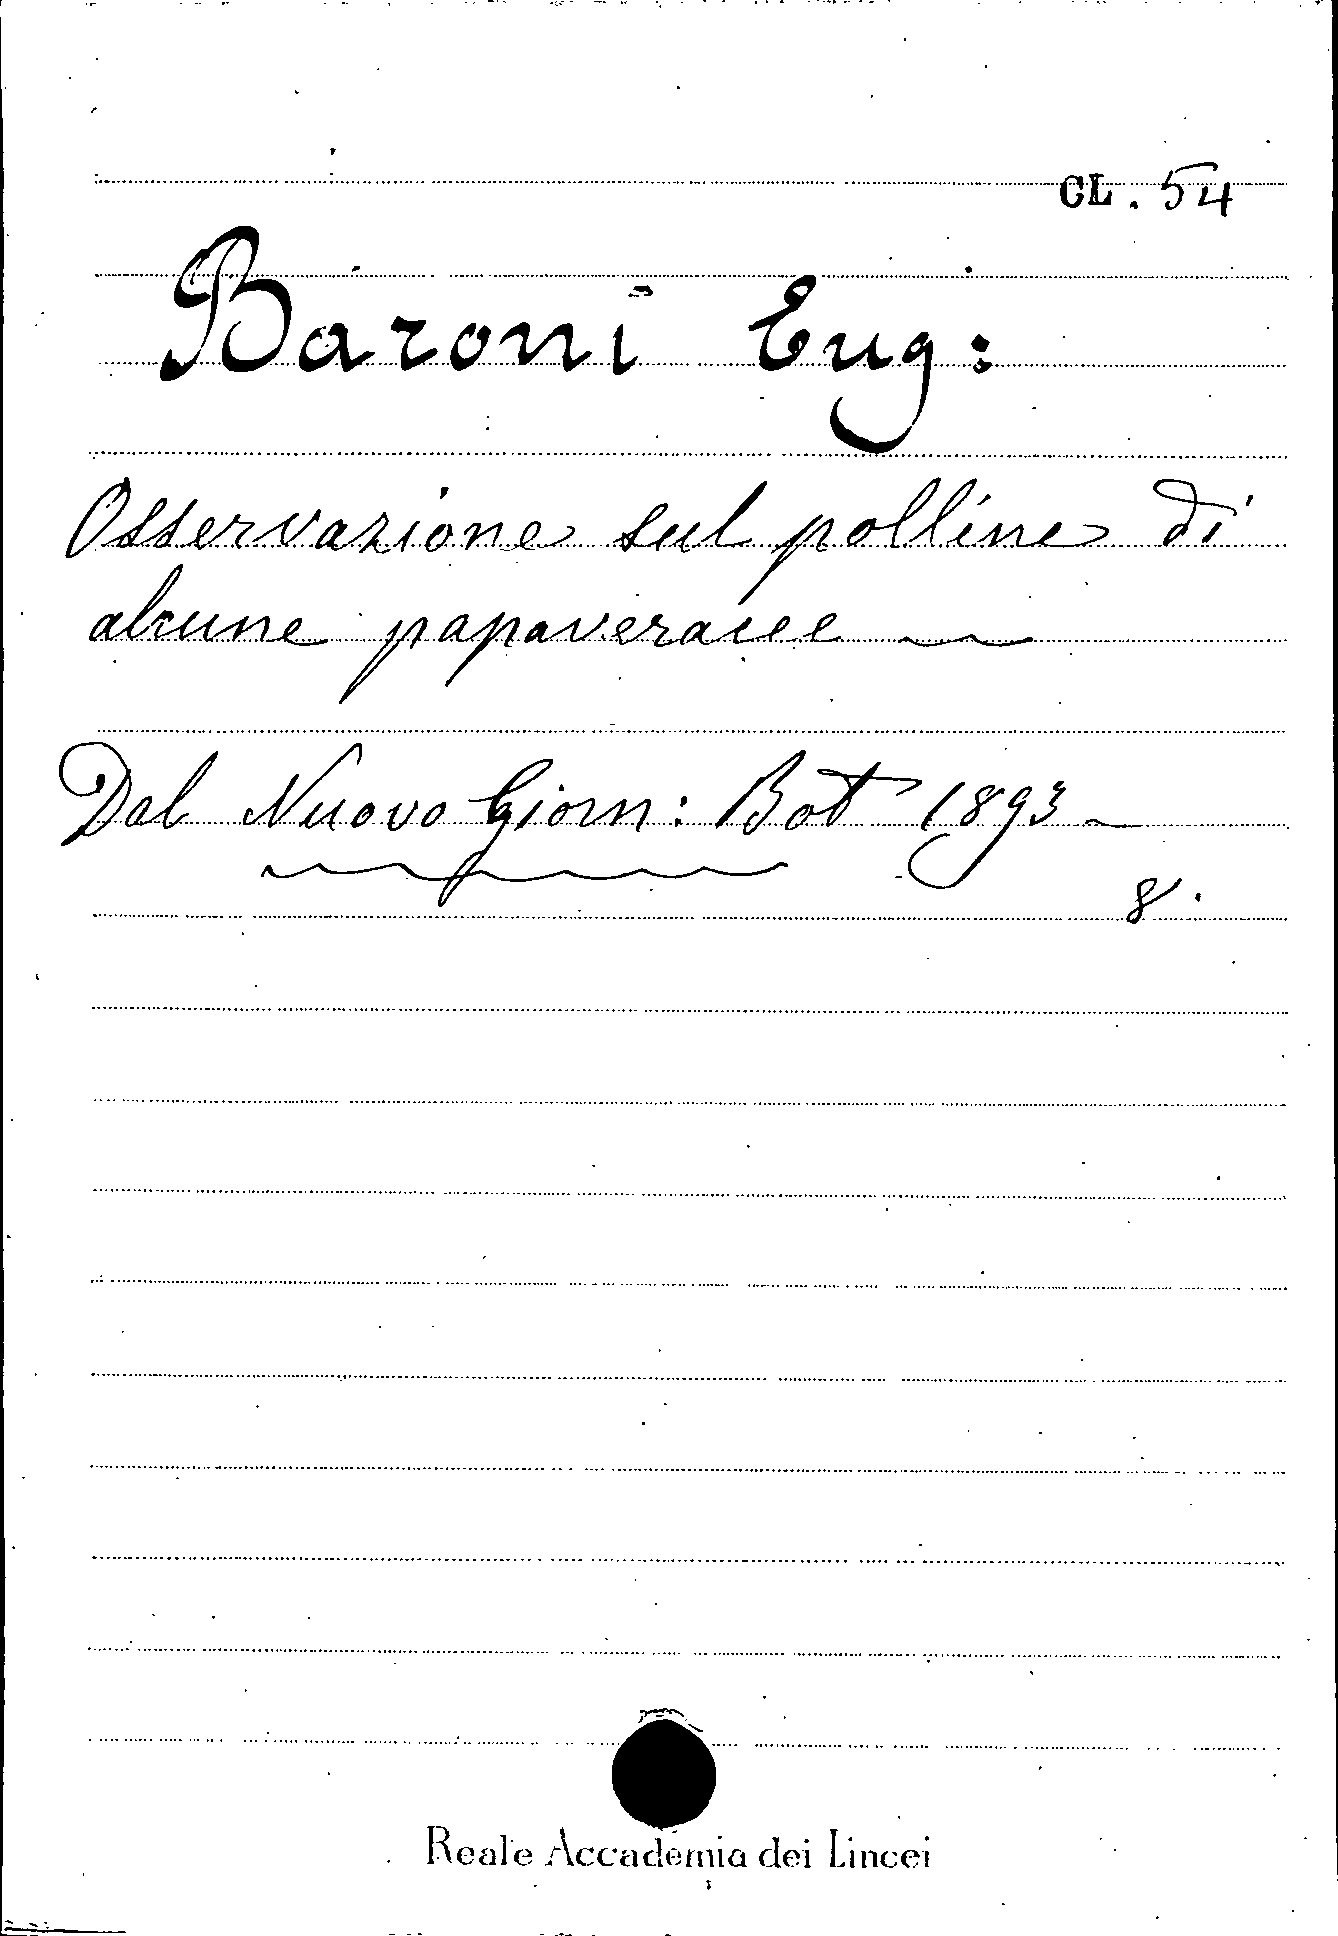 CL. 54
Baroni Eug:
Osservazione sul polline di
alcune papaveracee
Dal Nuovo Giorn: Bot 1893
8.
Reale Accademia dei Lincei